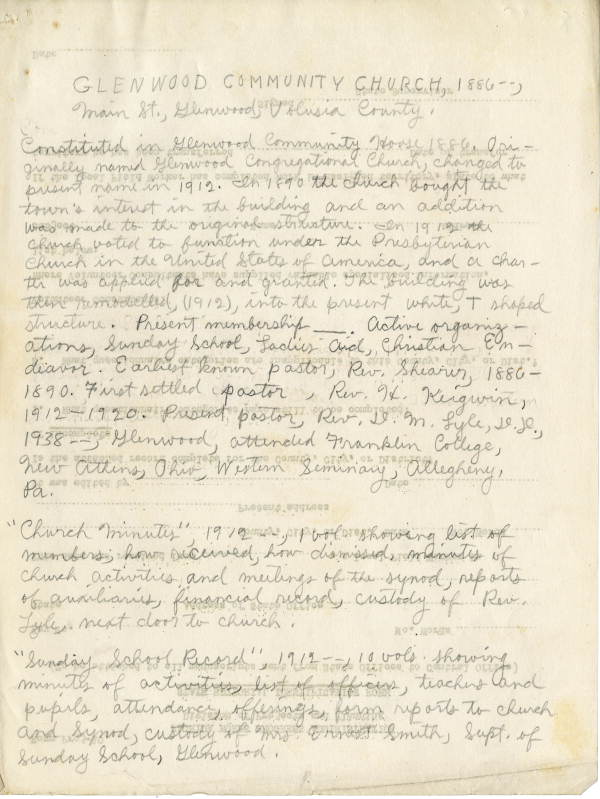 GLENWOOD COMMUNITY CHURCH, 1886--,
Main St., Glenwood, Volusia County.
Constituted in Glenwood Community House 1886. Ori-
ginally named Glenwood Congregational Church, changed to
present name in 1912. In 1890 the church bought the
town's interest in the building and an addition
was made to the original structure. In 1912 the
church voted to function under the Presbyterian
Church in the United States of America, and a char-
ter was applied for and granted. The building was
then remodelled, (1912), into the present white, T shaped
structure. Present membership ___. Active organiz-
ations, Sunday School, Ladies Aid, Christian En-
diavor. Earliest known pastor, Rev. Shearer, 1886-
1890. First settled pastor, Rev. H. Keigwin,
1912-1920. Present pastor, Rev. D. M. Lyle, D.D.,
1938--, Glenwood, attended Franklin College,
New Athens, Ohio, Western Seminary, Allegheny,
Pa.
"Church Minutes", 1912--, 1 vol. showing list of
members, how received, how dismissed, minutes of
church activities, and meetings of the synod, reports
of auxiliaries, financial record, custody of Rev.
Lyle, next door to church.
"Sunday School Record", 1912--, 10 vols. showing
minutes of activities, list of officers, teachers and
pupils, attendance, offerings, form reports to church
and Synod, custody of Mrs. Smith, Supt. of
Sunday School, Glenwood.